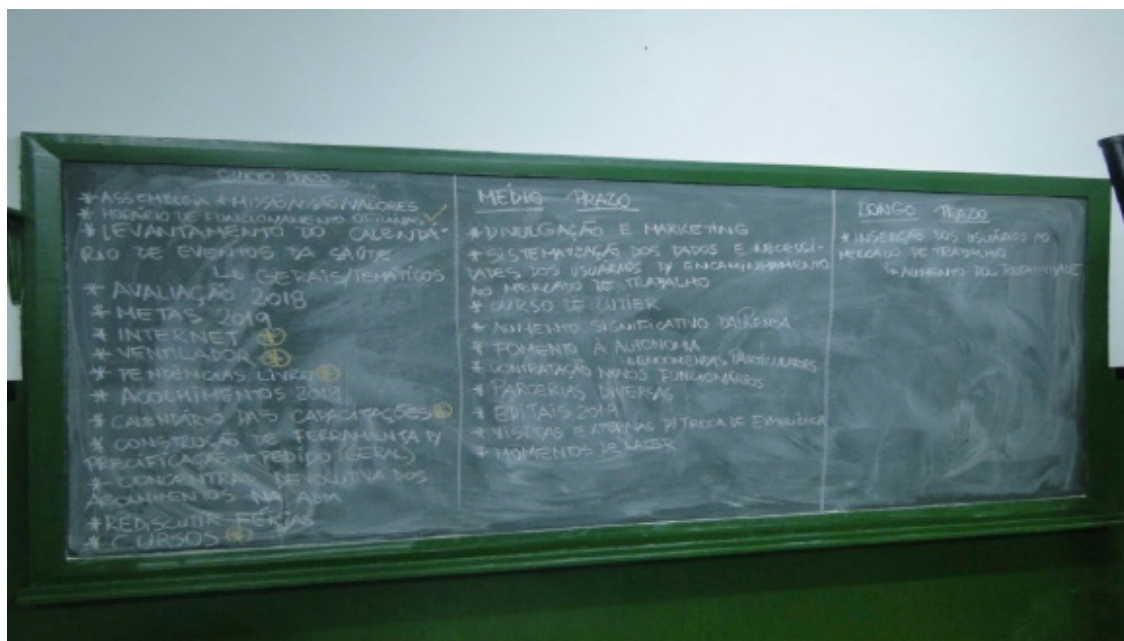 CURTO PRAZO
* ASSEMBLEIA * MISSÃO/VISÃO/VALORES
* HORÁRIO DE FUNCIONAMENTO OFICINAS ✓
* LEVANTAMENTO DO CALENDÁ-
RIO DE EVENTOS DA SAÚDE
↳ GERAIS/TEMÁTICOS
* AVALIAÇÃO 2018
* METAS 2019
* INTERNET *
* VENTILADOR *
* PENDÊNCIAS LIVRO *
* ACOLHIMENTOS 2019
* CALENDÁRIO DAS CAPACITAÇÕES *
* CONSTRUÇÃO DE FERRAMENTA P/
PRECIFICAÇÃO + PEDIDO (GERAL)
* CONCENTRAR DEVOLUTIVA DOS
ACOLHIMENTOS NA
* REDISCUTIR FÉRIAS
* CURSOS *
MÉDIO PRAZO
* DIVULGAÇÃO E MARKETING
* SISTEMATIZAÇÃO DOS DADOS E NECESSI-
DADES DOS USUÁRIOS P/ ENCAMINHAMENTO
AO MERCADO DE TRABALHO
* CURSO DE LUTIER
* AUMENTO SIGNIFICATIVO DA RENDA
* FOMENTO À AUTONOMIA
ENCOMENDAS PARTICULARES
* CONTRATAÇÃO NOVOS FUNCIONÁRIOS
* PARCERIAS DIVERSAS
* EDITAIS 2019
* VISITAS EXTERNAS P/ TROCA DE EXPERIÊNCIA
* MOMENTOS DE LAZER
LONGO PRAZO
* INSERÇÃO DOS USUÁRIOS NO
MERCADO DE TRABALHO
↳ AUMENTO DA ROTATIVIDADE